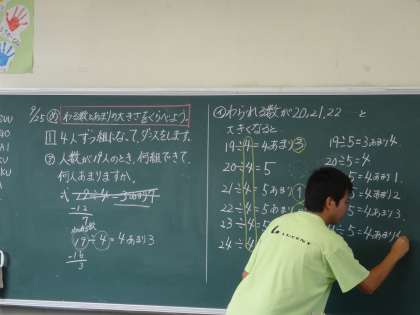 9/25 め わる数とあまりの大きさをくらべよう。
1 4人ずつ組になって、ダンスをします。
人数が19人のとき、何組できて、
何人あまりますか。
-12
7
19÷4=4あまり3
-16
3
わられる数が20,21,22 と
大きくなると
19÷4=4あまり3
20÷4=5
21÷4=5あまり1
22÷4=5あまり
23÷4=5あまり
24÷4
19÷5=3あまり4
20÷5=4
÷5=4あまり1
÷5=4あまり2
÷5=4あまり3
÷5=4あまり4